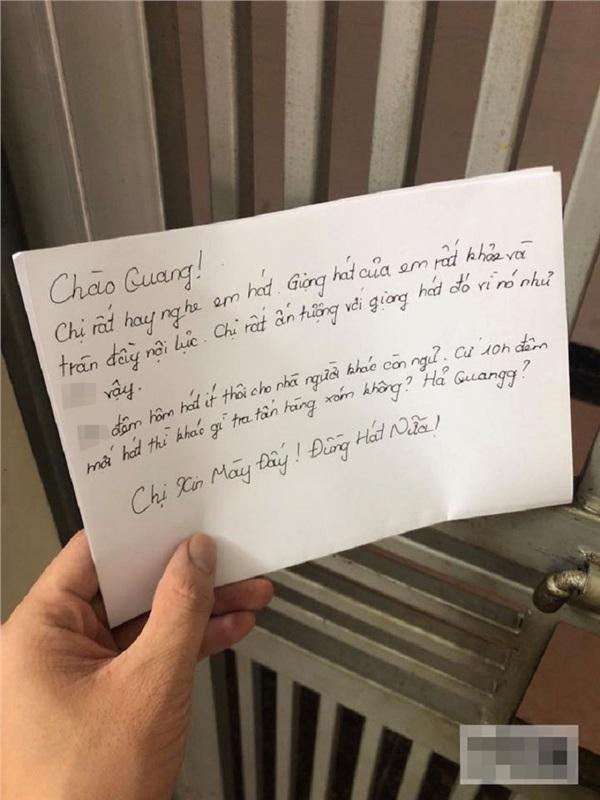 Chào Quang!
Chị rất hay nghe em hát. Giọng hát của em rất khỏe và
tràn đầy nội lực. Chị rất ấn tượng với giọng hát đó vì nó như
vậy.
đêm hôm hát ít thôi cho nhà người khác còn ngủ. Cứ 10h đêm
mới hát thì khác gì tra tấn hàng xóm không? Hả Quangg?
Chị Xin Mày Đấy! Đừng Hát Nữa!